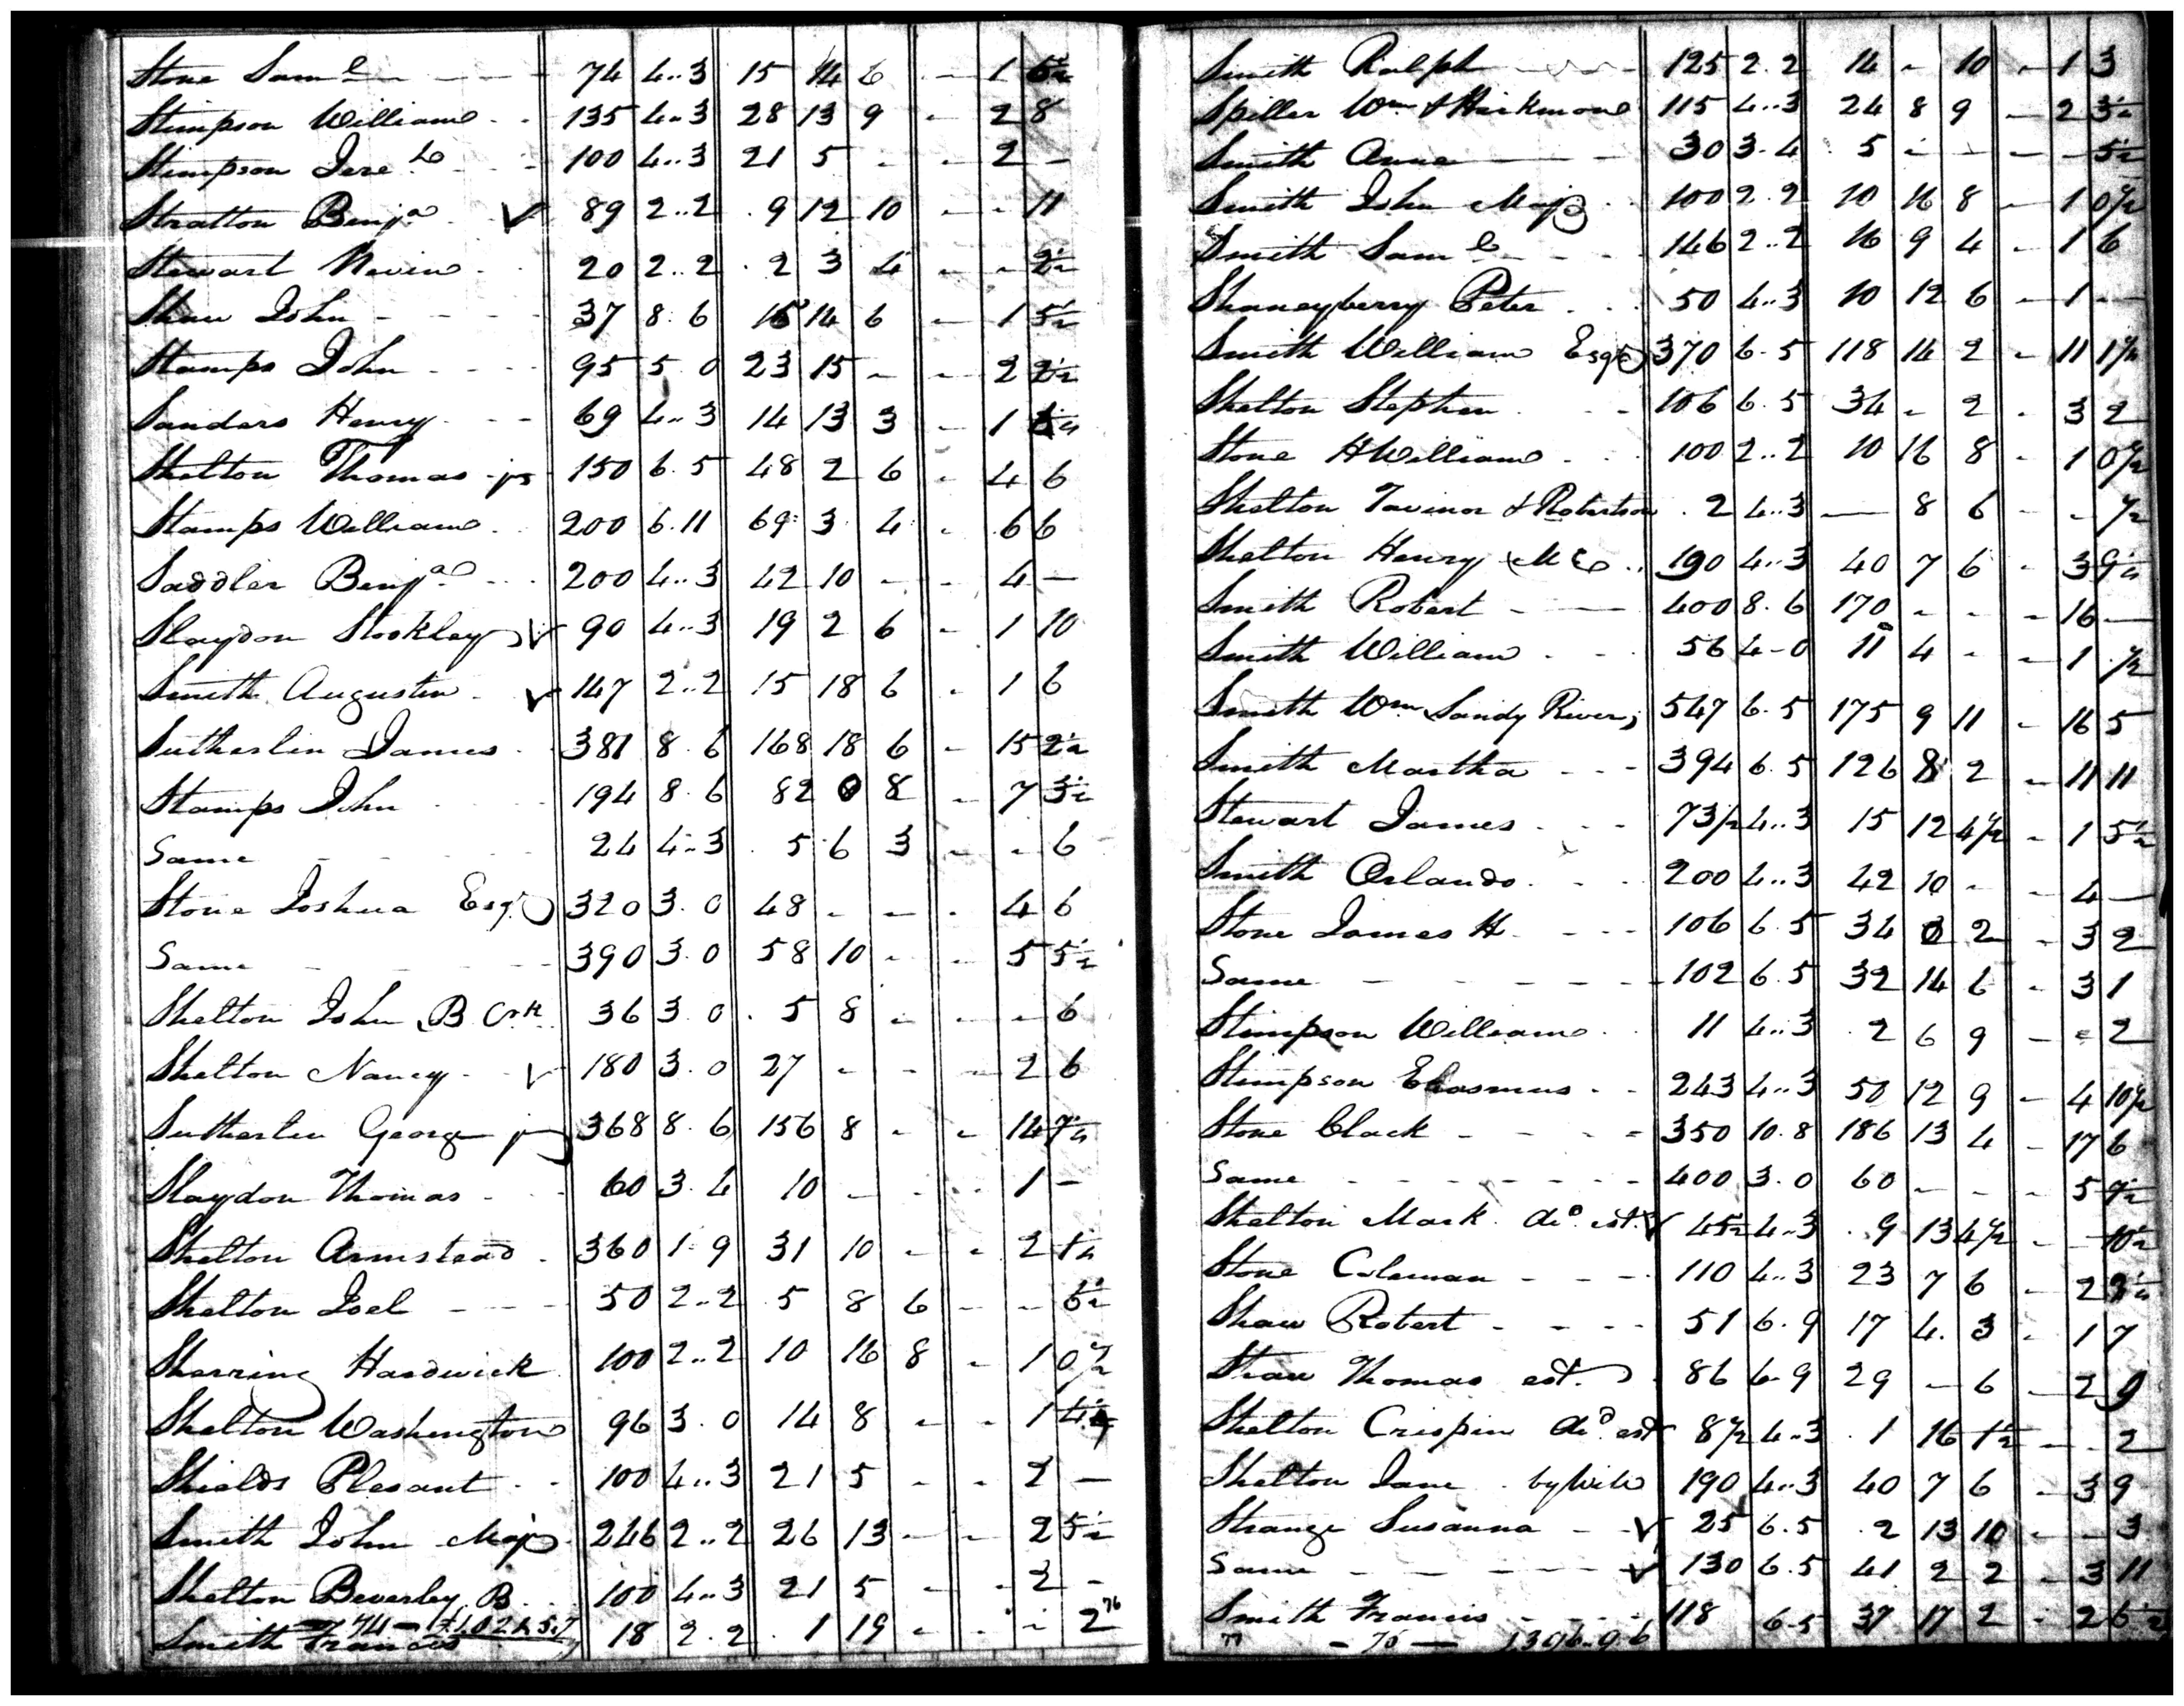 Stone Saml - - - 74 4..3 15 14 6 - 1 6½
Stimpson William - - 135 4..3 28 13 9 - 2 8
Stimpson Jereh - - 100 4..3 21 5 - - 2 -
Stratton Benja V 89 2..2 9 12 10 - - 11
Stewart Nevin - 20 2..2 2 3 4 - - 2½
Shaw John - - - 37 8.6 15 14 6 - 1 5½
Stamps John - - - 95 5 0 23 15 - - 2 2½
Sanders Henry - - 69 4..3 14 13 3 - 1
Shelton Thomas jr 150 6.5 48 2 6 - 4 6
Stamps William - 200 6.11 69 3 4 - 6 6
Saddler Benja - - 200 4..3 42 10 - - 4 -
Slaydon Stockley V 90 4..3 19 2 6 - 1 10
Smith Augustin - V 147 2..2 15 18 6 - 1 6
Sutherlin James - 381 8.6 168 18 6 - 15 2½
Stamps John - - 194 8.6 82 0 8 - 7 3½
Same - - - 24 4..3 5 6 3 - - 6
Stone Joshua Esqr 320 3.0 48 - - - 4 6
Same - - - 390 3.0 58 10 - - 5 5½
Shelton John B Crk 36 3.0 5 8 - - - 6
Shelton Nancy - V 180 3.0 27 - - - 2 6
Sutherlin George jr 368 8.6 156 8 - - 14 7½
Slaydon Thomas - - 60 3.4 10 - - - 1 -
Shelton Armstead - 360 1.9 31 10 - - 2 1½
Shelton Joel - - - 50 2..2 5 8 6 - - 6½
Sharring Hardwick 100 2..2 10 16 8 - 1 0½
Shelton Washington 96 3.0 14 8 - - 1
Shields Plesant - - 100 4..3 21 5 - - 2 -
Smith John Majr 246 2..2 26 13 - - 2 5½
Shelton Beverley B - 100 4..3 21 5 - - 2 -
Smith Francis 18 2.2 1 19 - - - 2
74 76
Smith Ralph - - - 125 2.2 14 - 10 - 1 3
Spiller Wm & Hickmond 115 4..3 24 8 9 - 2 3½
Smith Anna - - - 30 3.4 5 - - - - 5½
Smith John Majr - - 100 2.2 10 16 8 - 1 0½
Smith Saml - - - 146 2..2 16 9 4 - 1 6
Shaneyberry Peter - - 50 4..3 10 12 6 - 1 -
Smith William Esqr 370 6.5 118 14 2 - 11 1½
Shelton Stephen - - 106 6.5 34 - 2 - 3 2
Stone H William - - 100 2..2 10 16 8 - 1 0½
Shelton Tavinor & Robertson 2 4..3 - 8 6 - - ½
Shelton Henry - - 190 4..3 40 7 6 - 3 9½
Smith Robert - - 400 8.6 170 - - - 16 -
Smith William - - 56 4-0 11 4 - - 1 ½
Smith Wm Sandy River 547 6.5 175 9 11 - 16 5
Smith Martha - - - 394 6.5 126 8 2 - 11 11
Stewart James - - 73½ 4..3 15 12 4½ - 1 5½
Smith Orlando - - - 200 4..3 42 10 - - 4 -
Stone James H - - - 106 6.5 34 0 2 - 3 2
Same - - - - - 102 6.5 32 14 6 - 3 1
Stimpson William - - 11 4..3 2 6 9 - - 2
Stimpson Erasmus - - 243 4..3 50 12 9 - 4 10½
Stone Clack - - - 350 10.8 186 13 4 - 17 6
Same - - - - - 400 3.0 60 - - - 5 7½
Shelton Mark decd est. V 45½ 4..3 9 13 4½ - - 10½
Stone Coleman - - - 110 4..3 23 7 6 - 2
Shaw Robert - - - 51 6.9 17 4 3 - 1 7
Shaw Thomas est. 86 6.9 29 - 6 - 2 9
Shelton Crispin decd est 8½ 4..3 1 16 1½ - - 2
Shelton Jane by Will 190 4..3 40 7 6 - 3 9
Strange Susanna - V 25 6.5 2 13 10 - - 3
Same - - - - V 130 6.5 41 2 2 - 3 11
Smith Francis - - - 118 6.5 37 17 2 - 2 6½
77 - 75 - 1396.9.6